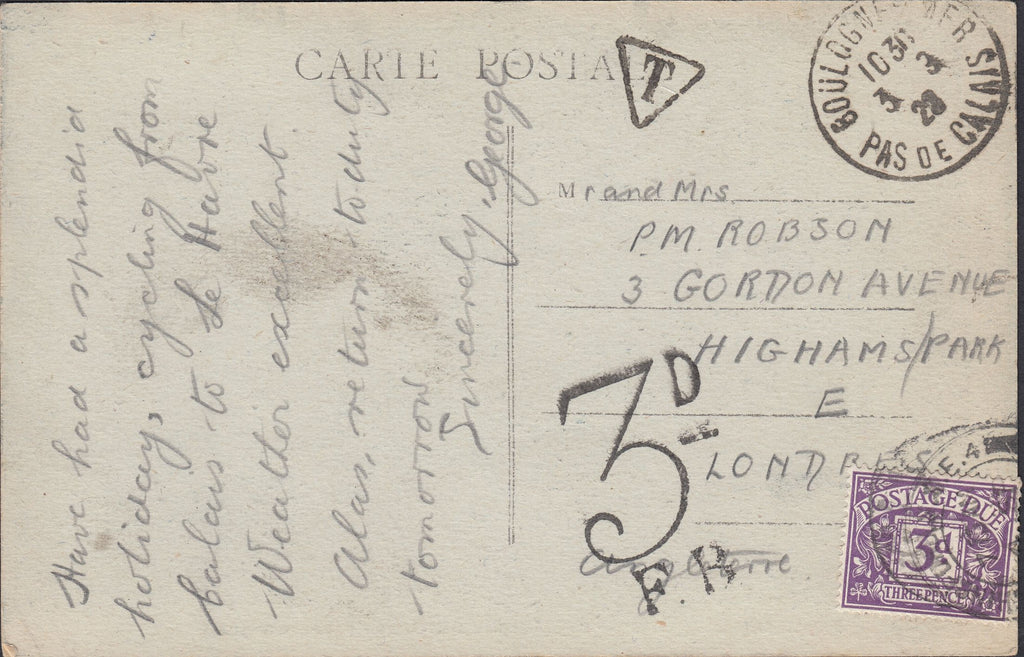 CARTE POSTALE
T
BOULOGNE S MER SIN
1030
3 3
28
PAS DE CALAIS
Have had a splendid
holiday, cycling from
Calais to Le Havre
Weather excellent.
Alas, return to duty
tomorrow.
Sincerely, George
Mr and Mrs.
P.M. ROBSON
3 GORDON AVENUE
HIGHAMS/PARK
E
LONDRES
Angleterre.
3D
F.B
POSTAGE DUE
3d
THREE PENCE